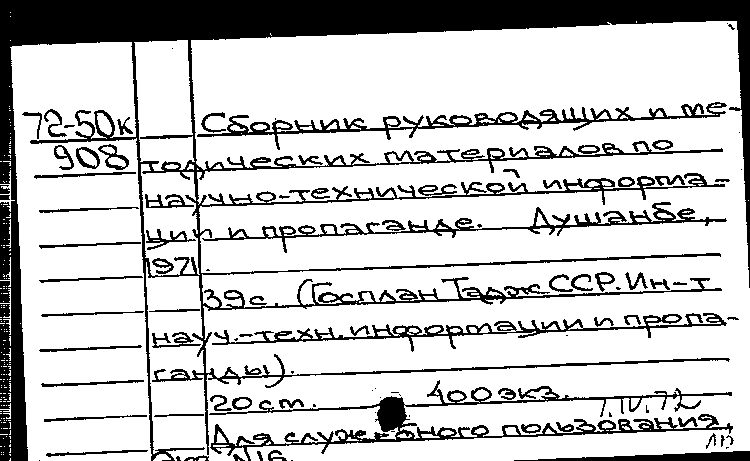 72-50к Сборник руководящих и ме-
908 тодических материалов по
научно-технической информа-
ции и пропаганде. Душанбе,
1971.
39с. (Госплан Тадж ССР. Ин-т
науч.-техн. информации и пропа-
ганды).
20 см. 400 экз.
1.IV.72
Для служебного пользования,